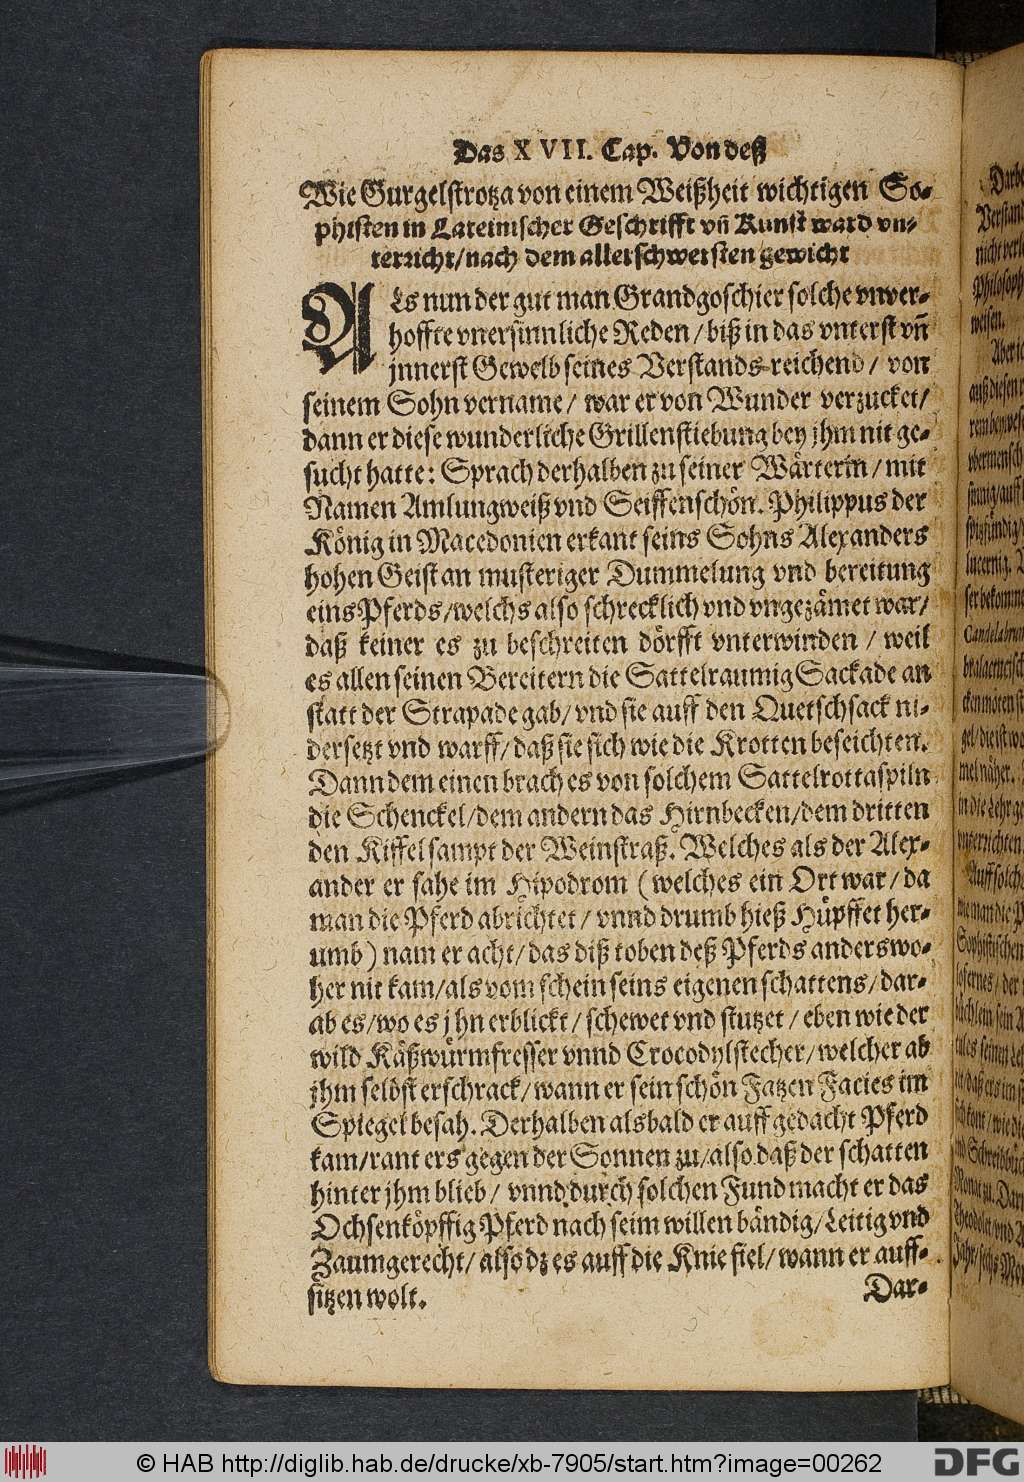 Das XVII. Cap. Von deß
Wie Gurgelstrotza von einem Weißheit wichtigen So-
phisten in Lateinischer Geschrifft vñ Kunst ward vn-
terricht/nach dem allerschwersten gewicht
ALs nun der gut man Grandgoschier solche vnver-
hoffte vnersinnliche Reden/biß in das vnterst vñ
jnnerst Gewelb seines Verstands-reichend/ von
seinem Sohn vername/ war er von Wunder verzucket/
dann er diese wunderliche Grillenstiebung bey jhm nit ge-
sucht hatte: Sprach derhalben zu seiner Wärterin/mit
Namen Amlungweiß vnd Seiffenschön. Philippus der
König in Macedonien erkant seins Sohns Alexanders
hohen Geist an musteriger Dummelung vnd bereitung
eins Pferds/welchs also schrecklich vnd vngezämet war/
daß keiner es zu beschreiten dörfft vnterwinden / weil
es allen seinen Bereitern die Sattelraumig Sackade an
statt der Strapade gab/vnd sie auff den Quetschsack ni-
dersetzt vnd warff/daß sie sich wie die Krotten beseichten.
Dann dem einen brach es von solchem Sattelrottaspiln
die Schenckel/dem andern das Hirnbecken/dem dritten
den Kiffel sampt der Weinstraß. Welches als der Alex-
ander er sahe im Hipodrom (welches ein Ort war/da
man die Pferd abrichtet/ vnnd drumb hieß Hüpffet her-
umb) nam er acht/das diß toben deß Pferds anderswo-
her nit kam/als vom schein seins eigenen schattens/dar-
ab es/wo es jhn erblickt/schewet vnd stutzet/eben wie der
wild Käßwürmfresser vnnd Crocodylstecher/welcher ab
jhm selbst erschrack/wann er sein schön Fatzen Facies im
Spiegel besah. Derhalben alsbald er auff gedacht Pferd
kam/rant ers gegen der Sonnen zu/also daß der schatten
hinter jhm blieb/ vnnd durch solchen Fund macht er das
Ochsenköpffig Pferd nach seim willen bändig/Leitig vnd
Zaumgerecht/also dz es auff die Knie fiel/wann er auff-
sitzen wolt.
Dar-
Verstand
Philosoph
weisen.
Aber ic
© HAB http://diglib.hab.de/drucke/xb-7905/start.htm?image=00262
DFG